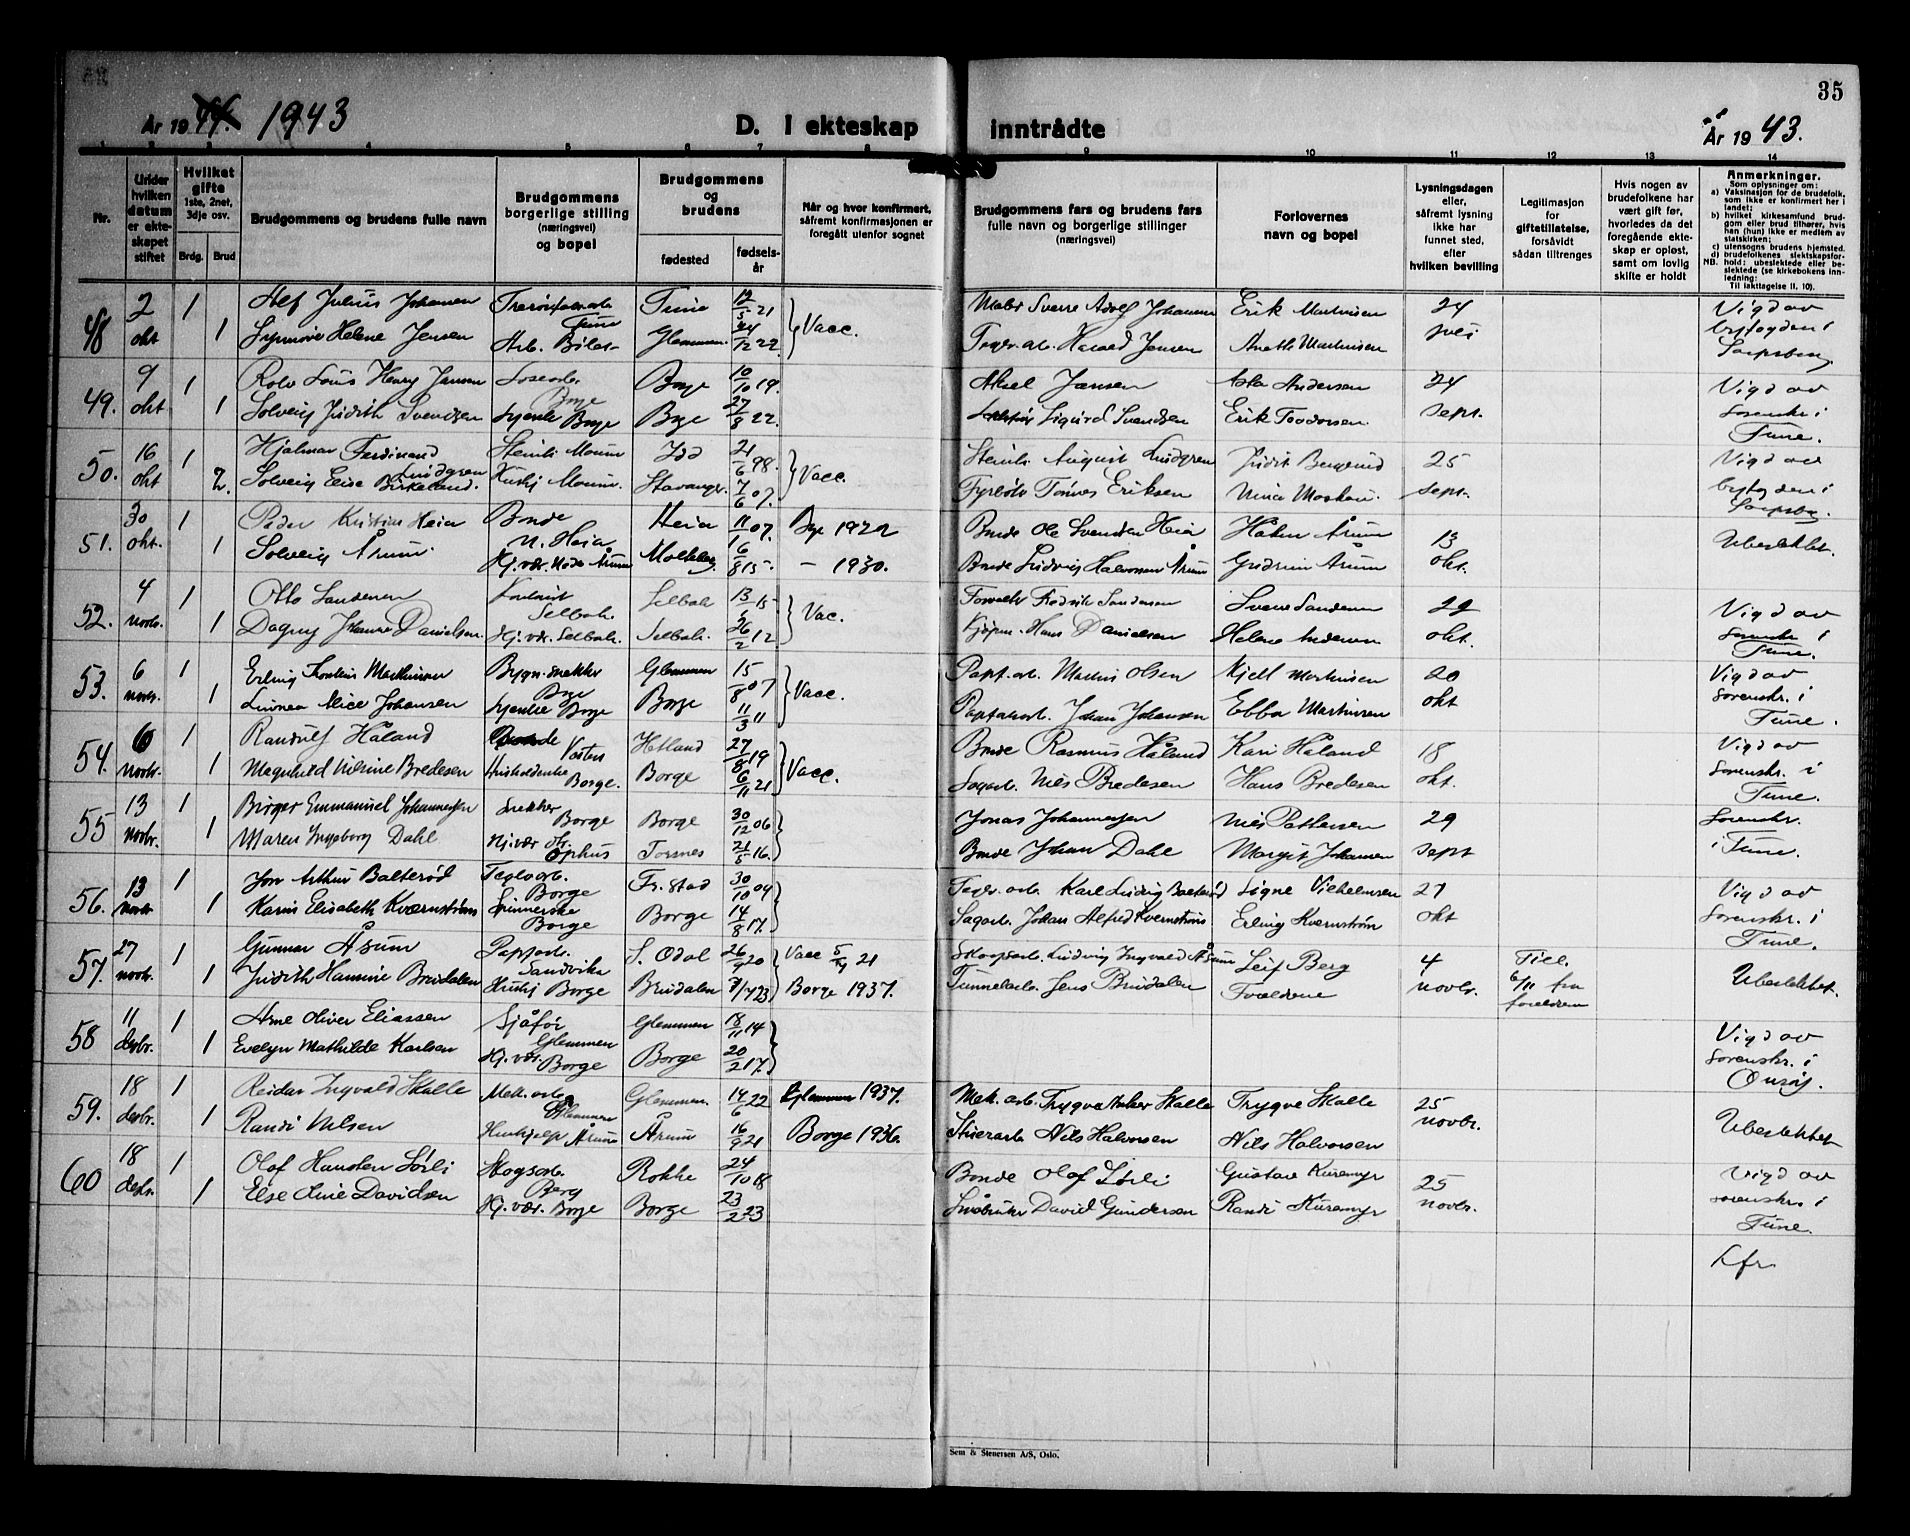 35
År 19 44. 1943
D. I ekteskap inntrådte
År 19 43.
1 2 3 4 5 6 7 8 9 10 11 12 13 14
Nr.
Under hvilken datum er ekteskapet stiftet
Hvilket gifte 1ste, 2net, 3dje osv.
Brdg. Brud
Brudgommens og brudens fulle navn
Brudgommens borgerlige stilling (næringsvei) og bopel
Brudgommens og brudens
fødested
fødselsår
Når og hvor konfirmert, såfremt konfirmasjonen er foregått utenfor sognet
Brudgommens fars og brudens fars fulle navn og borgerlige stillinger (næringsvei)
Forlovernes navn og bopel
Lysningsdagen eller, såfremt lysning ikke har funnet sted, efter hvilken bevilling
Legitimasjon for giftetillatelse, forsåvidt sådan tiltrenges
Hvis nogen av brudefolkene har vært gift før, hvorledes da det foregående ekteskap er opløst, samt om lovlig skifte er holdt
Anmerkninger.
Som oplysninger om:
a) Vaksinasjon for de brudefolk, som ikke er konfirmert her i landet;
b) hvilket kirkesamfund brudgom eller brud tilhører, hvis han (hun) ikke er medlem av statskirken;
c) utensogns brudens hjemsted.
d) brudefolkenes slektskapsforhold: ubeslektede eller beslektede (se kirkebokens innledning: Til iakttagelse II, 10).
48 2 okt 1 Alf Julius Johansen Tune 12/5 21 Vacc. Sverre Adolf Johansen Erik Martinsen 24 Vigd av
1 Synnøve Helene Jensen Glemmen 24/12 22 Tegv. arb. Harald Jensen Aneth Martinsen byfogden i Sarpsborg
49. 9 okt 1 Rolv Louis Henry Jansen Losearb. Borge Borge 10/10 19 Aksel Jansen Asta Andersen 24 Vigd av
1 Solveig Judith Svendsen Borge Borge 27/8 22. Sigurd Svendsen Erik Teodorsen sept. sorenskr. i Tune.
50. 16 okt 1 Hjalmar Ferdinand Lindgren Moum Idd 21/6 98. Vacc. August Lindgren Judit Berglund 25 Vigd av
2. Solveig Elise Birkeland. Hushj Moum. Stavanger 7/6 07. Fyrbøter Tønnes Eriksen Nina Moskau. sept. byfogden i Sarpsborg.
51. 30 okt. 1 Peder Kristian Heia Bonde N. Heia Heia 11/1 07. Borge 1922 Bonde Ole Svendsen Heia Håkon Årum 13 Ubeslektet.
1 Solveig Årum. Hj. vær. Årum 6/8 15 – 1930. Bonde Ludvig Halvorsen Årum Gudrun Årum okt.
52. 4 novb. 1 Otto Sandersen Kontorist Selbak. Selbak 13/6 15 Vac. Fredrik Sandersen Sverre Sandersen 22 Vigd av
1 Dagny Johanne Danielsen. Hj. vær. Selbak. Selbak. 26/2 12 Kjøpm. Hans Danielsen Helene Andersen okt. sorenskr i Tune.
53. 6 novb. 1 Erling Thorleiv Martinsen Bygn. snekker Borge Glemmen 15/8 07 Vacc. Papf. arb. Martin Olsen Kjell Martinsen 20 Vigd av
1 Linnea Alice Johansen Borge Borge 11/3 11 Papfabarb. Johan Johansen Ebba Martinsen okt sorenskr. i Tune.
54. 6 novbr. 1 Randulf Håland Hetland 27/8 19 Vacc. Bonde Rasmus Håland Kari Håland 18 Vigd av
1 Magnhild Nilsine Bredesen Husholderske Borge. Borge 6/11 21 Sagarb. Nils Bredesen Hans Bredesen okt. sorenskr. i Tune.
55 13 novbr. 1 Birger Emmanuel Johannessen Snekker Borge Borge 30/12 06 Jonas Johannessen Nils Pettersen 29 Sorenskr.
1 Maren Ingeborg Dahl Hj. vær Ophus Torsnes 21/5 16. Bonde Johan Dahl Margit Johansen sept i Tune.
56. 13 novbr 1 Jon Arthur Balterød Teglv arb. Borge Fr. stad 30/10 09 Teglv. arb. Karl Ludvig Balterød Signe Vilhelmsen 27 Vigd av
1 Karin Elisabeth Kvernstrøm Spinnerske Borge Borge 14/8 17. Sagarb. Johan Alfred Kvernstrøm Erling Kvernstrøm okt sorenskr. i Tune.
57. 27 novbr. 1 Gunnar Åsum Papfarb. Sandvika S. Odal 26/9 20 Vacc 5/9 21 Skogsarb. Ludvig Ingvald Åsum Leif Berg 4 Till. Ubeslektet.
1 Judith Hannine Brudalen Hushj Borge Brudalen 7/7 23 Borge 1937. Tunnelarb. Jens Brudalen Foreldrene novbr. 6/11 fra foreldren
58 11 desbr. 1 Arne Oliver Eliassen Sjåfør Glemmen Glemmen 18/11 14 Vigd av
1 Evelyn Mathilde Karlsen Hj. vær. Borge Borge 20/2 17. sorenskr. i Onsøy.
59. 18 desbr. 1 Reidar Ingvald Skalle Mek. arb. Glemmen Glemmen. 14/6 22 Glemmen 1937. Mek. arb. Trygve Skalle Trygve Skalle 25 novbr. Ubeslektet
1 Randi Nilsen Hushjelp Årum Årum 16/9 21 Borge 1936. Nils Halvorsen Nils Halvorsen
60 18 desbr. 1 Olaf Hansten Sørli Skogsarb. Berg Rokke 24/10 18 Bonde Olaf Sørli Gustav Kuremyr 25 Vigd av
1 Else Davidsen Hj. vær. Borge Borge 23/2 23 Småbruker David Gundersen Randi Kuremyr novbr. sorenskr i Tune.
Sem & Stenersen A/S, Oslo.